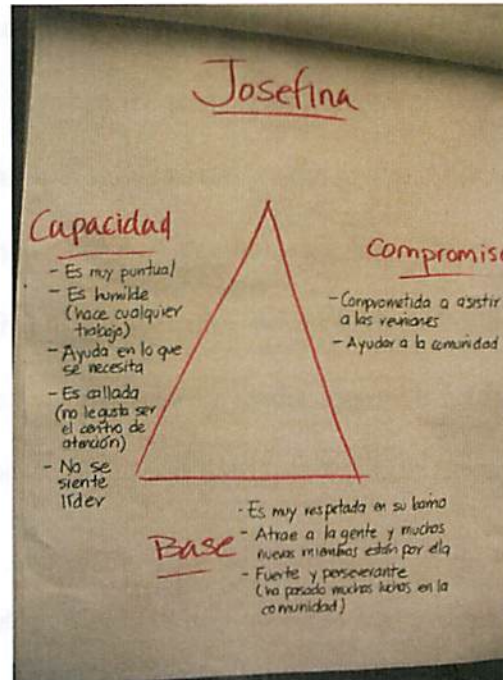 Josefina
Capacidad
- Es muy puntual
- Es humilde
(hace cualquier
trabajo)
- Ayuda en lo que
se necesita
- Es callada
(no le gusta ser
el centro de
atención)
- No se
siente
líder
Compromiso
- Comprometida a asistir
a las reuniones
- Ayudar a la comunidad
Base
- Es muy respetada en su barrio
- Atrae a la gente y muchos
nuevos miembros están por ella
- Fuerte y perseverante
(ha pasado muchas luchas en la
comunidad)